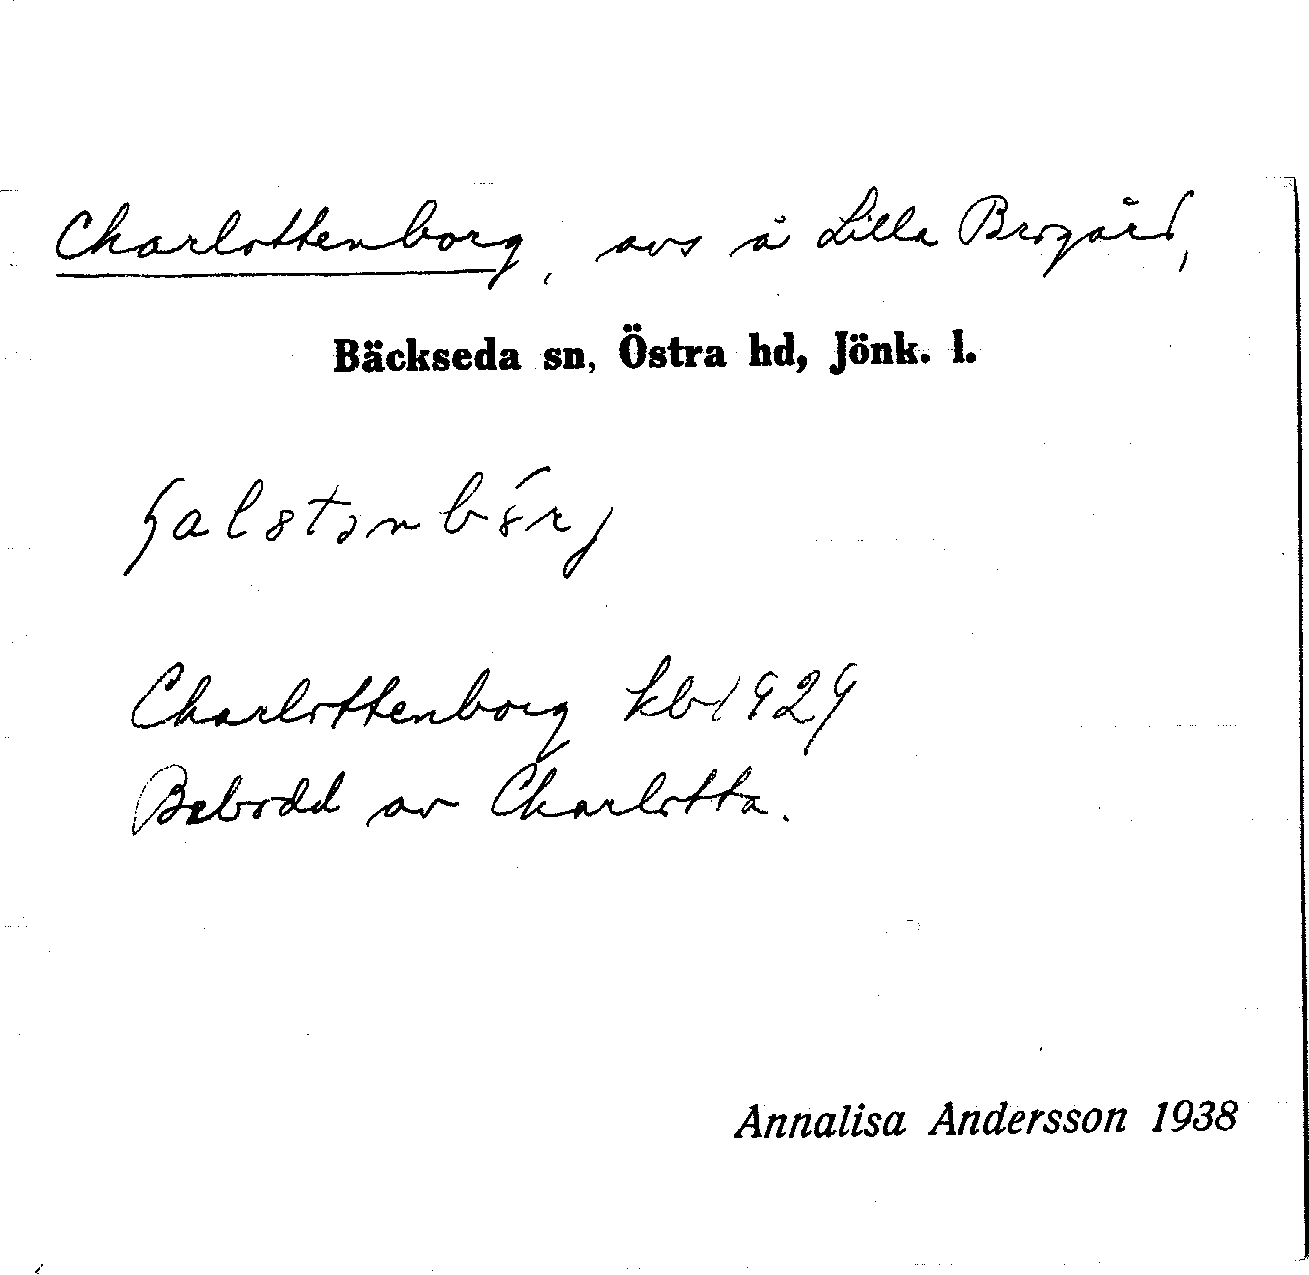 Charlottenborg, avs å Lilla Brogård,
Bäckseda sn, Östra hd, Jönk. l.
Charlottenborg kb 1929
Bebodd av Charlotta.
Annalisa Andersson 1938